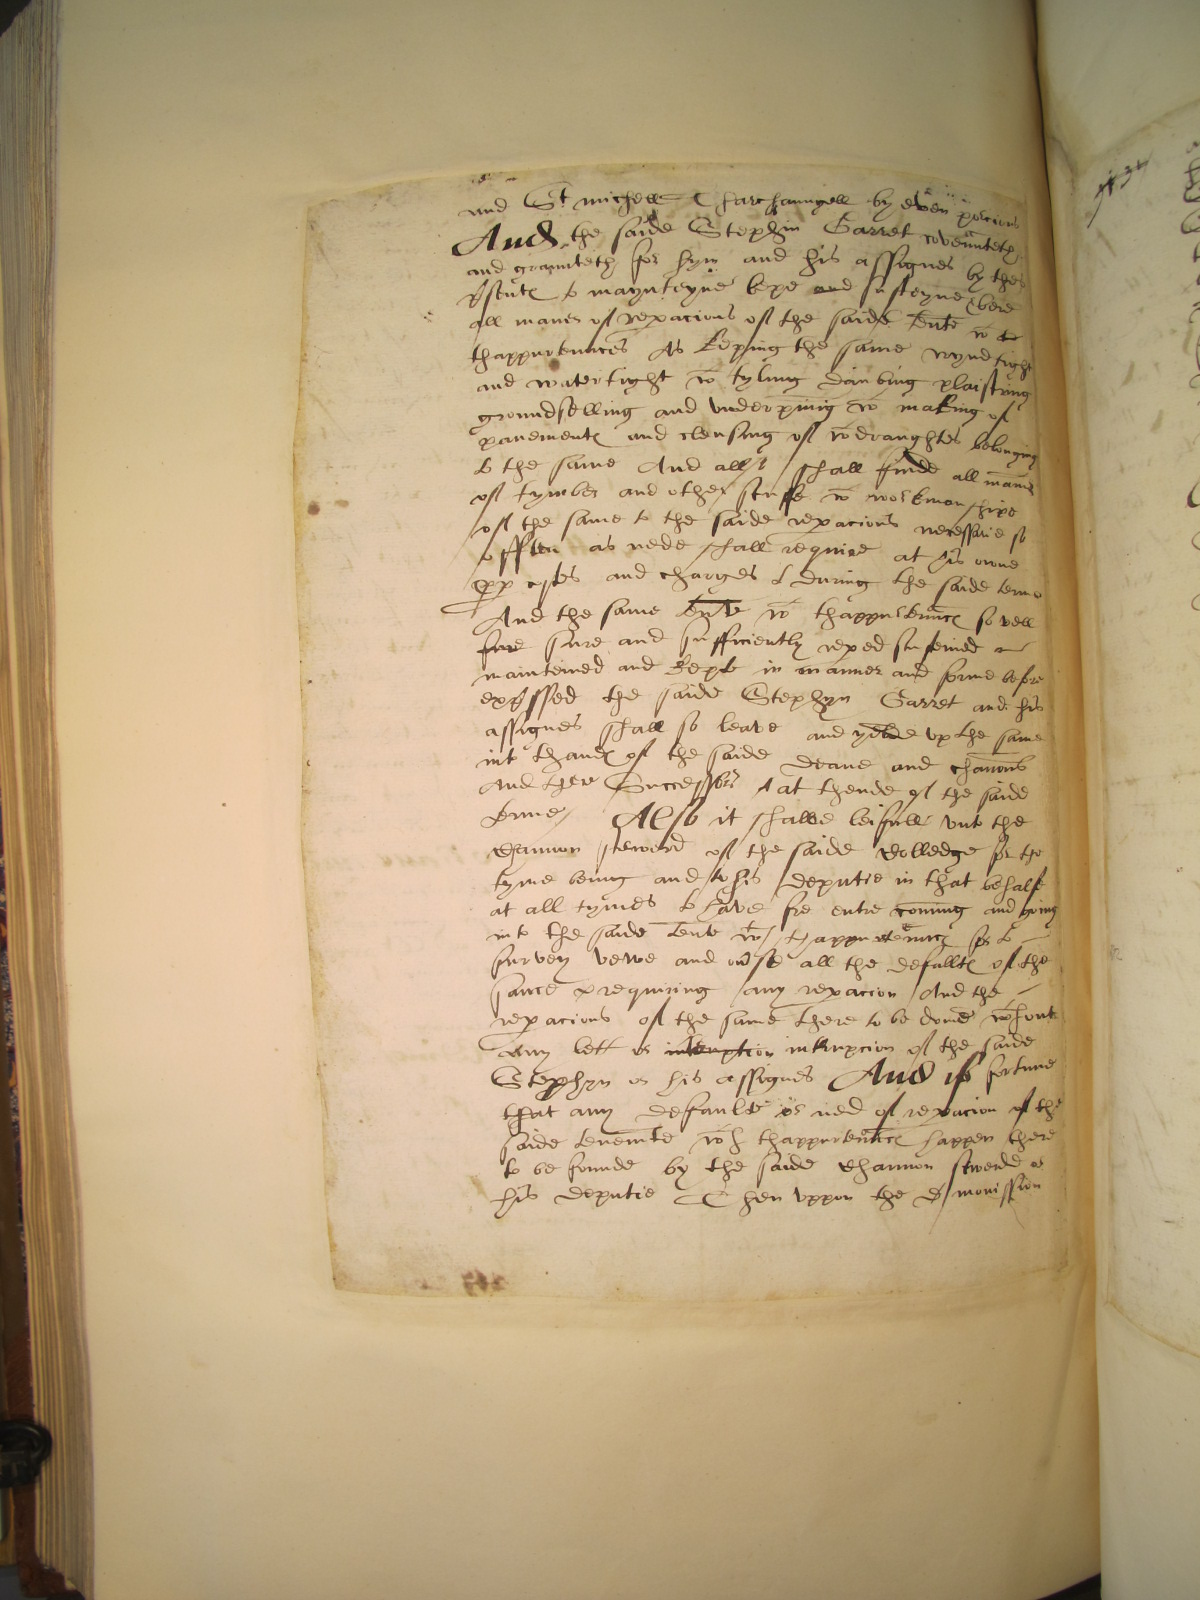 and St michell Tharchanngell by even porcions
And the saide Stephin Garret covennteth
and graunteth for hym and his assignes by thes
psentꝭ to maynteyne kepe and susteyne & bere
all maner of repacions of the saide Tente wt
thappurtences As keping the same wynd tight
and watertight wt tyling daubing plaistring
groundselling and underpinig wt making of
pavementꝭ and clensing of wtdraughtes belonging
to the same And all shall finde all maner
of tymber and other stuffe wt workmonshipe
of the same to the saide repacions necessarie so
offten as nede shall require at his owne
ppr costes and charges during the saide terme
And the same Tente wt thappurtennceꝭ so well
sure and sufficiently reped susteined
mainteined and kept in manner and forme before
expssed the saide Stephyn Garret and his
assignes shall so leave and yelde up the same
into thandꝭ of the saide deane and chanons
and ther Successors at thende of the saide
terme Also it shalbe leifull unto the
channon steward of the saide Colledge for the
tyme being and to his deputie in that behalf
at all tymes to have fre entre coming and going
into the saide tente wt thappurtennceꝭ for to
survey vewe and all the defalltꝭ of the
same requiring any repacion And the
repacions of the same there to be done wthout
any lett or interuption intrupcion of the saide
Stephyn or his assignes And if fortune
that any defaulte or ned of repacion of the
saide tenemte wth thappurtennceꝭ happen there
to be founde by the saide channon stwerde or
his deputie Then uppon the pmonission